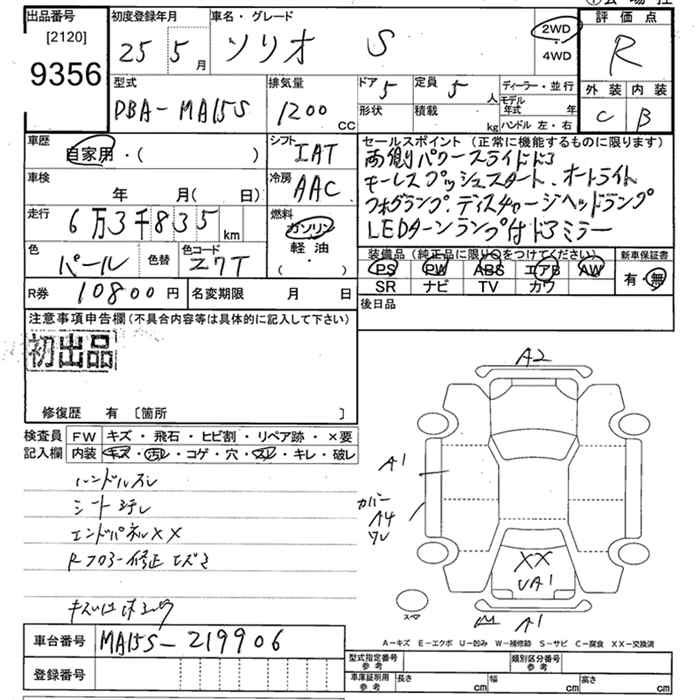 出品番号
[2120]
9356
初度登録年月
25 5 月
車名・グレード
ソリオ S
2WD
4WD
評価点
R
外装 内装
C B
型式
DBA-MA15S
排気量
1200 CC
ドア 5
定員 5 人
形状
積載 kg
ディーラー・並行
モデル年式 年
ハンドル 左・右
車歴
自家用・( )
シフト
IAT
セールスポイント(正常に機能するものに限ります)
両側パワースライドドア
キーレスプッシュスタート、オートライト
フォグランプ、ディスチャージヘッドランプ
LEDターンランプ付ドアミラー
車検
年 月( 日)
冷房
AAC
走行
6万3千835 km
燃料
ガソリン
軽油
( ・ )
色
パール
色替
色コード
Z7T
装備品(純正品に限り○をつけてください)
PS PW ABS エアB AW
SR ナビ TV カワ
新車保証書
有・無
R券 10800円
名変期限 月 日
後日品
注意事項申告欄(不具合内容等は具体的に記入して下さい)
初出品
修復歴 有 〔箇所 〕
検査員記入欄
FW キズ・飛石・ヒビ割・リペア跡・×要
内装 キズ・汚レ・コゲ・穴・スレ・キレ・破レ
ハンドルスレ
シート汚レ
エンドパネルXX
A2
A1
カバー
A4
ワレ
XX
UA1
A1
スペア
A-キズ E-エクボ U-凹み W-補修跡 S-サビ C-腐食 XX-交換済
車台番号 MA15S-219906
登録番号
型式指定番号 参考
類別区分番号 参考
車庫証明用 参考
長さ cm
幅 cm
高さ cm